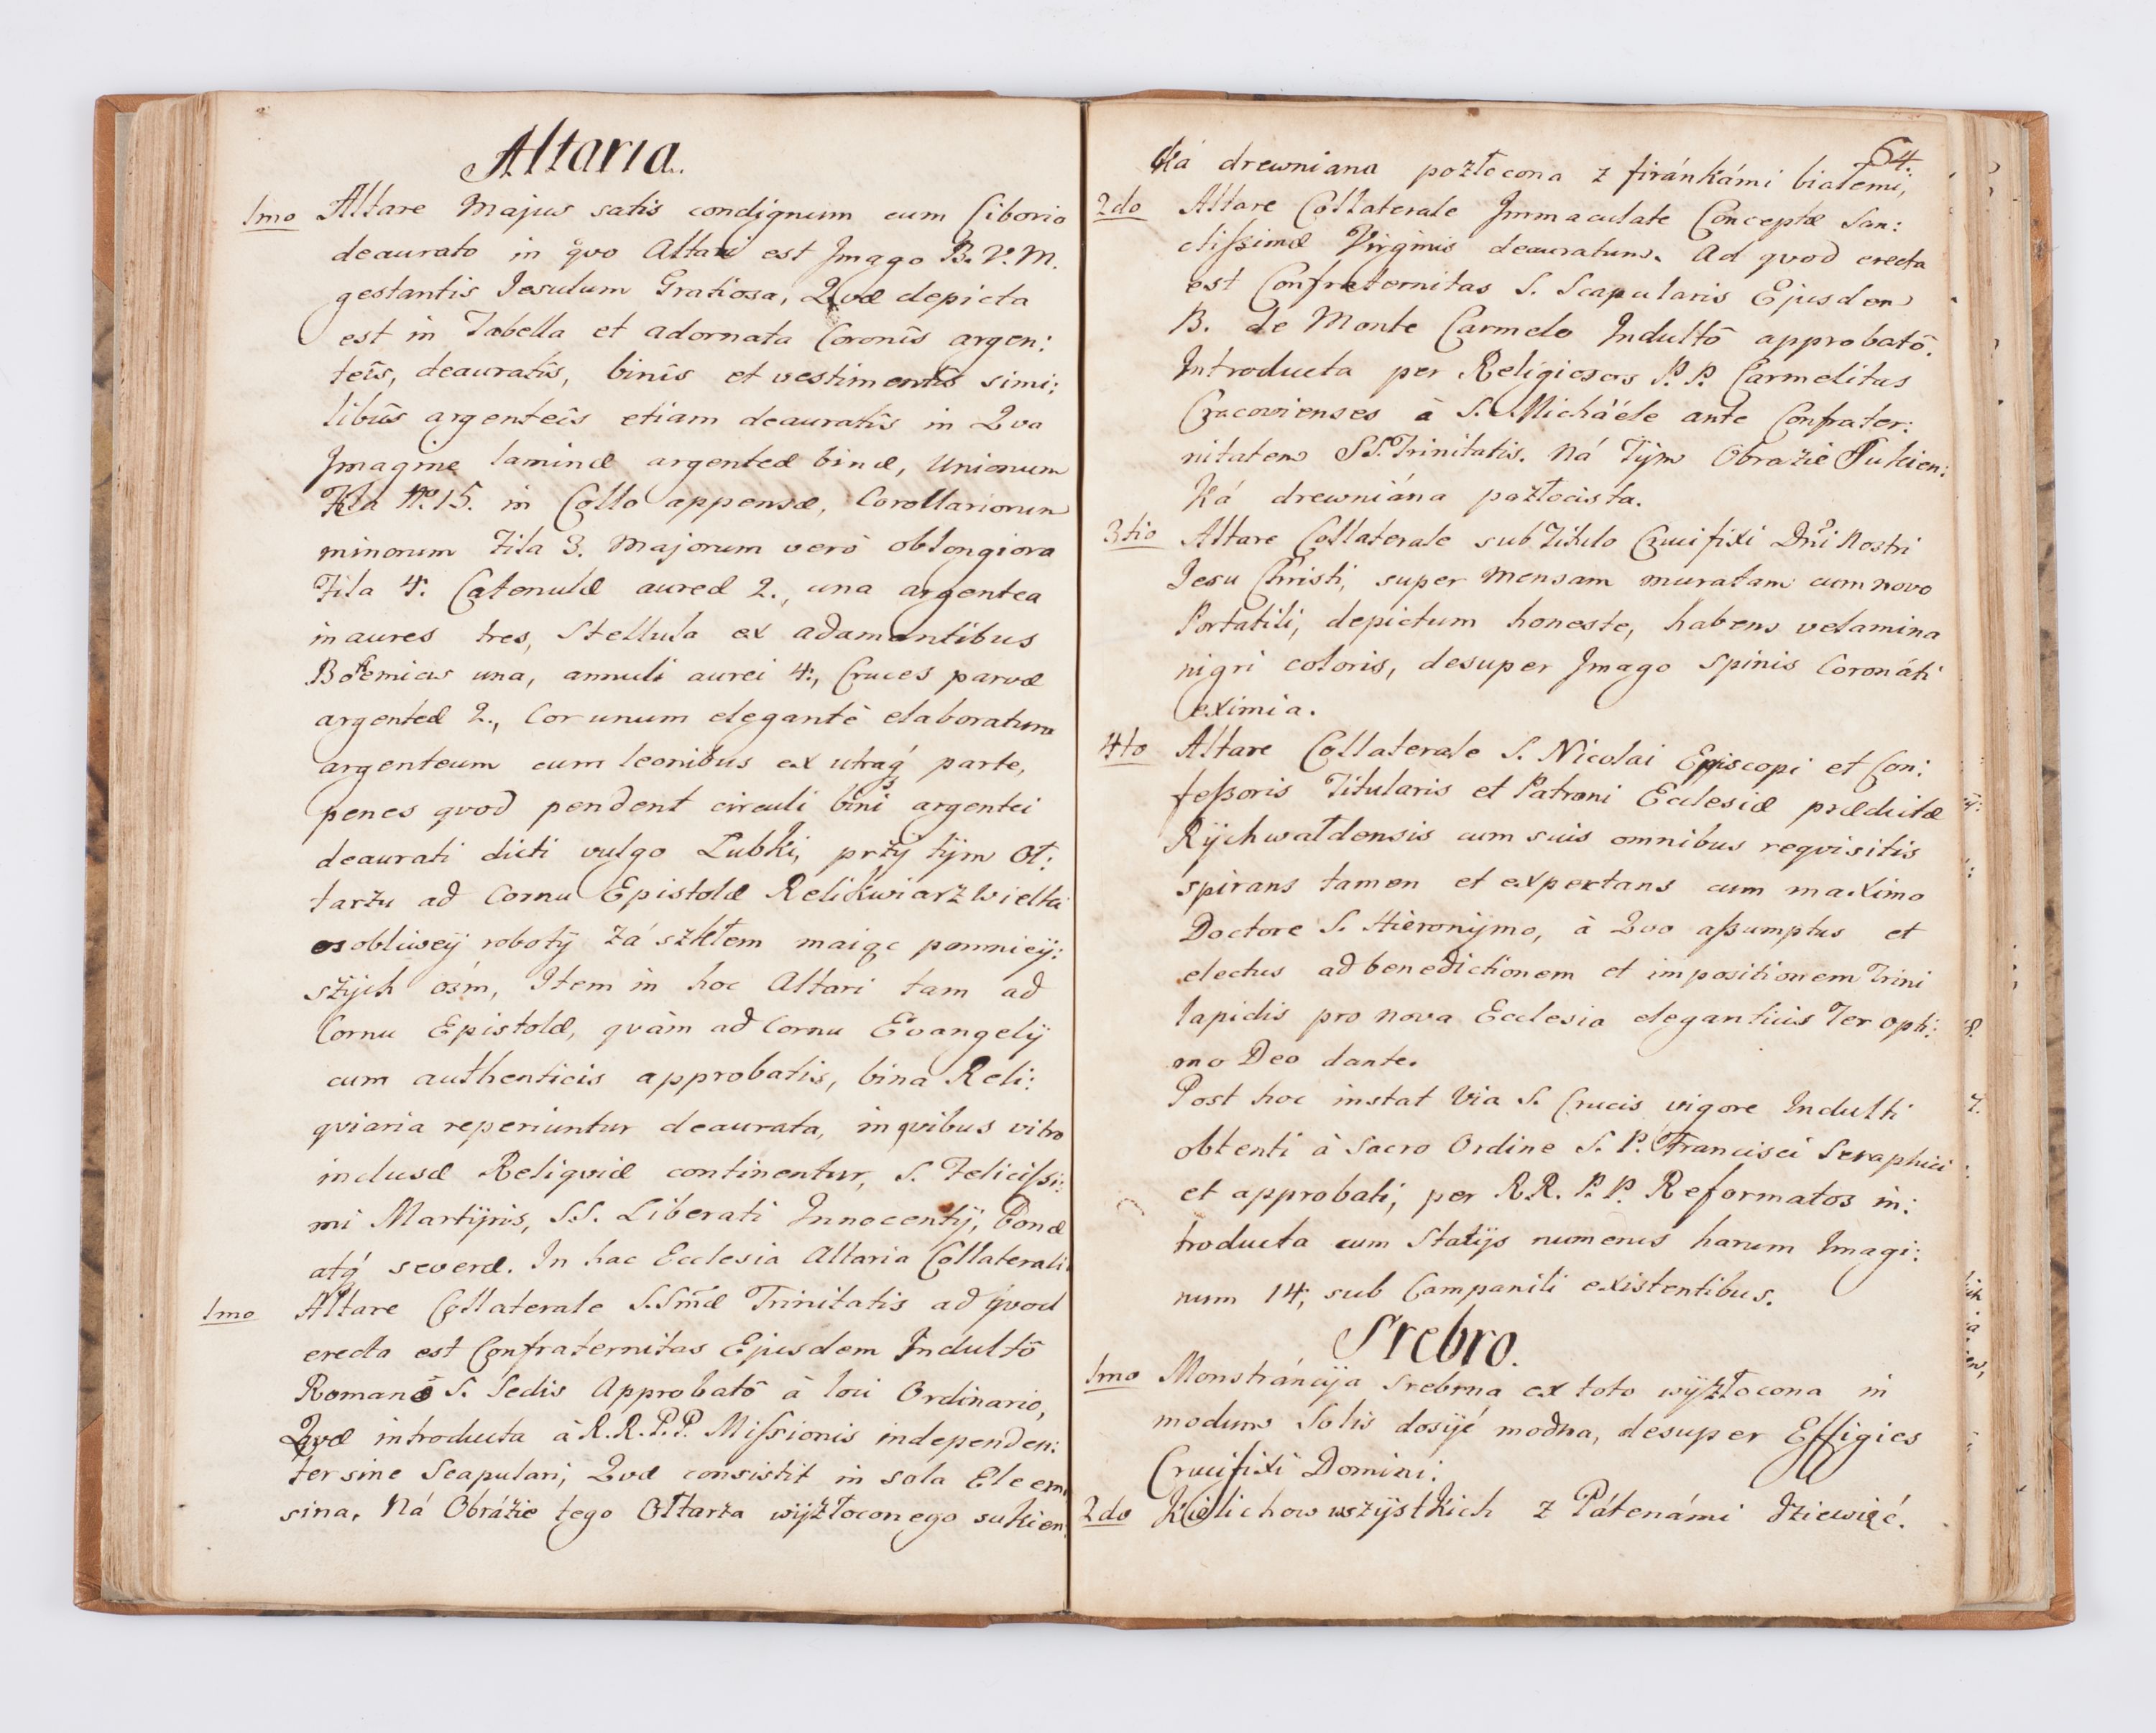 Altaria.
1mo Altare Majus satis condignum cum Ciborio
deaurato in qvo Altari est Jmago B. V. M.
gestantis Jesulum Gratiosa, Qvæ depicta
est in Tabella et adornata Coronîs argen:
teîs, deauratîs, binîs et vestimentîs simi:
libûs argenteîs etiam deauratîs in Qva
Jmagine laminæ argenteæ binæ, Unionum
Fila No. 15. in Collo appensæ, Corollariorum
minorum Fila 3. Majorum verò oblongiora
Fila 4. Catenulæ aureæ 2., una argentea
inaures tres, Stellula ex adamantibus
Bohemicis una, annuli aurei 4., Cruces parvæ
argenteæ 2., Cor unum elegantè elaboratum
argenteum cum leonibus ex utraq́ parte,
penes qvod pendent circuli bini argentei
deaurati dicti vulgo Lubki, przÿ tÿm Oł:
tarzu ad Cornu Epistolæ Relikwiarz wielki
osobliweÿ robotÿ zá szkłem maiąc pomnieÿ:
szÿch ósm, Item in hoc Altari tam ad
Cornu Epistolæ, qvàm ad Cornu Evangelÿ
cum authenticis approbatis, bina Reli:
qviaria reperiuntur deaurata, in qvibus vitro
inclusæ Reliqviæ continentur, S. Felicissi:
mi Martÿris, S.S. Liberati Innocentÿ, Bonæ
atq́ severæ. In hac Ecclesia Altaria Collateralia
1mo Altare Collaterale S.Smæ Trinitatis ad qvod
erecta est Confraternitas Ejusdem Indultô
Romanô S. Sedis Approbatô à loci Ordinario,
Qvæ introducta à R.R.P.P. Missionis independen:
ter sine Scapulari, Qvæ consistit in sola Eleemo
sina, Ná Obrázie tego Ołtarza wÿzłoconego sukien
64.
ká drewniana pozłocona z firánkámi białemi,
2do Altare Collaterale Jmmaculate Conceptæ San:
ctissimæ Virginis deauratum. Ad qvod erecta
est Confraternitas S. Scapularis Ejusdem
B. de Monte Carmelo Indultô approbatô.
Introducta per Religiosos P.P. Carmelitas
Cracovienses à S. Micháéle ante Confrater:
nitatem SS. Trinitatis. Ná Tÿm Obrazie Sukien:
ká drewniána pozłocista.
3tio Altare Collaterale sub Titulo Crucifixi Dñi Nostri
Jesu Christi, super Mensam muratam cum novo
Portatili, depictum honeste, habens velamina
nigri coloris, desuper Jmago Spinis Coronáti
eximia.
4to Altare Collaterale S. Nicolai Episcopi et Con:
fessoris Titularis et Patroni Ecclesiæ prædictæ
Rÿchwałdensis cum suis omnibus reqvisitis
spirans tamen et expectans cum maximo
Doctore S. Hieronÿmo, à Qvo assumptus et
electus ad benedictionem et impositionem Trini
lapidis pro nova Ecclesia elegantius Ter opti:
mo Deo dante.
Post hoc instat Via S. Crucis vigore Indulti
obtenti à Sacro Ordine S. P. Francisci Seraphici
et approbati, per R.R. P.P. Reformatos in:
troducta cum Statÿs numerus harum Imagi:
num 14, sub Campanili existentibus.
Srebro.
1mo Monstráncÿa srebrna ex toto wÿzłocona in
modum Solis dosÿć modna, desuper Effigies
Crucifixi Domini.
2do Kielichow wszÿstkich z Pátenámi dziewięć.